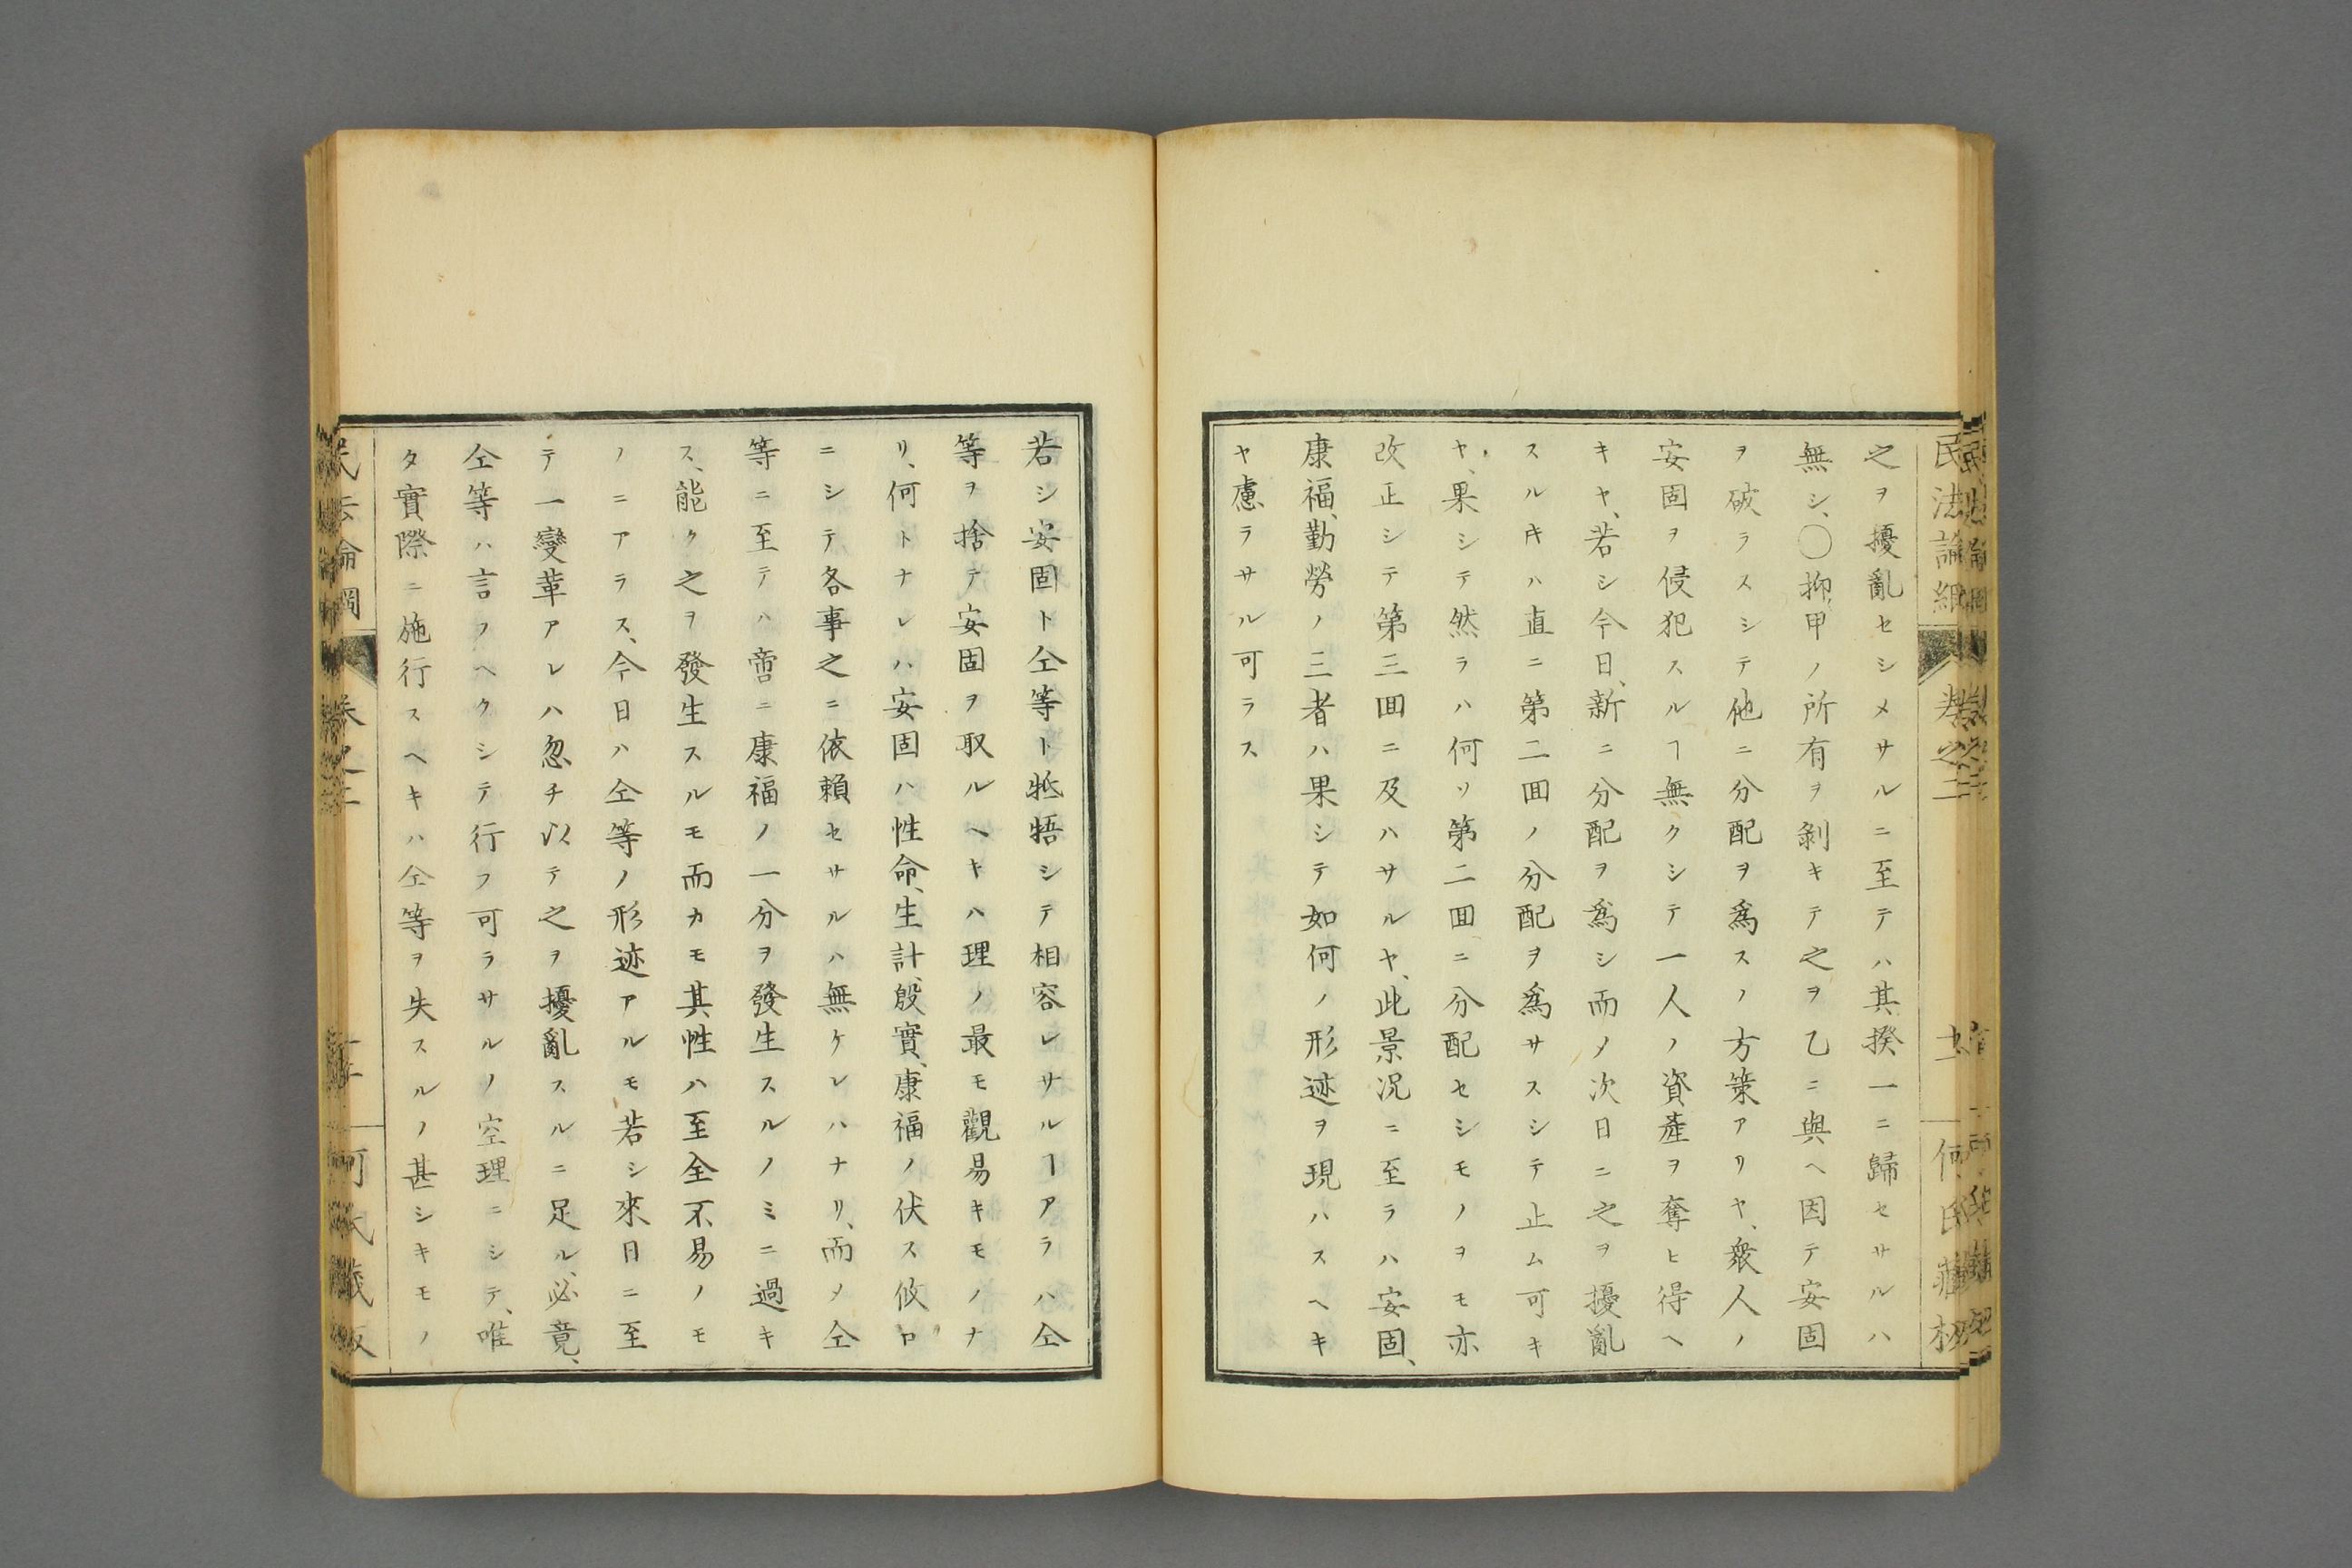 之ヲ擾亂セシメサルニ至テハ其揆一ニ歸セサルハ
無シ、〇抑、甲ノ所有ヲ剝キテ之ヲ乙ニ與ヘ因テ安固
ヲ破ラスシテ他ニ分配ヲ爲スノ方策アリヤ、衆人ノ
安固ヲ侵犯スルヿ無クシテ一人ノ資產ヲ奪ヒ得ヘ
キヤ、若シ今日、新ニ分配ヲ爲シ而メ次日ニ之ヲ擾亂
スルキハ直ニ第二回ノ分配ヲ爲サスシテ止ム可キ
ヤ、果シテ然ラハ何ソ第二回ニ分配セシモノヲモ亦
改正シテ第三回ニ及ハサルヤ、此景況ニ至ラハ安固、
康福、勤勞ノ三者ハ果シテ如何ノ形迹ヲ現ハスヘキ
ヤ慮ラサル可ラス
民法論綱 卷之二 何氏藏板
若シ安固ト仝等ト牴牾シテ相容レサルヿアラハ仝
等ヲ捨テ安固ヲ取ルヘキハ理ノ最モ觀易キモノナ
リ、何トナレハ安固ハ性命、生計、殷實、康福ノ伏ス攸ロ
ニシテ各事之ニ依賴セサルハ無ケレハナリ、而メ仝
等ニ至テハ啻ニ康福ノ一分ヲ發生スルノミニ過キ
ス、能ク之ヲ發生スルモ而カモ其性ハ至全不易ノモ
ノニアラス、今日ハ仝等ノ形迹アルモ若シ來日ニ至
テ一變革アレハ忽チ以テ之ヲ擾亂スルニ足ル、必竟、
仝等ハ言フヘクシテ行フ可ラサルノ空理ニシテ、唯
タ實際ニ施行スヘキハ仝等ヲ失スルノ甚シキモノ